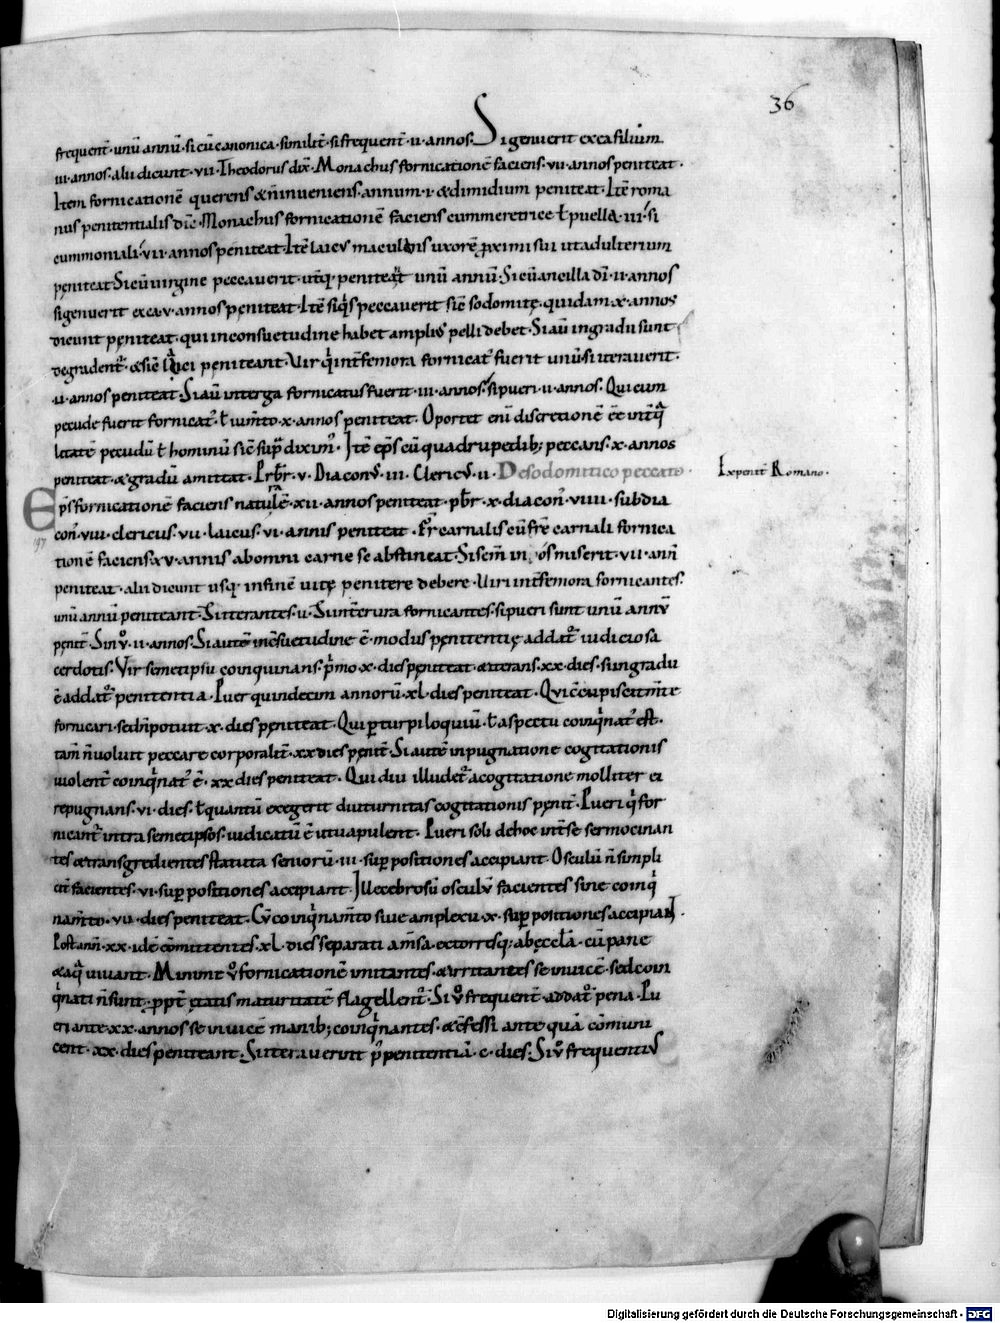 36
frequent̄ · unū annū · si cū canonica · similit̄ · si frequent̄ · ii · annos · Si genuerit ex ea filium
iii · annos · alii dicunt · vii · Theodorus dix̄ · Monachus fornicationē faciens · vii · annos peniteat ·
Item fornicationē querens & n̄ inveniens · annum · i · & dimidium peniteat · Itē roma
nus penitentialis dic̄ · Monachus fornicationē faciens cum meretrice ł puella · iii · si
cum moniali · vii · annos peniteat · Itē laicus maculans uxorē proximi sui vt adulterium
peniteat · Si cū virgine peccaverit · utq; peniteat unū annū · Si cū ancilla dī · ii · annos
si genuerit ex ea · v · annos peniteat · Itē siq's peccaverit sic̄ sodomitę · quidam · x · annos
dicunt pęniteat · qui in consuetudine habet amplius pelli debet · Si aū in gradu sunt
degradent᷑ · & sic̄ laici pęniteant · Vir q' int̄ femora fornicat' fuerit unū · si iteraverit ·
ii · annos peniteat · Si aū interga fornicatus fuerit · iii · annos · si pueri · ii · annos · Qui cum
pecude fuerit fornicat' · ł iumto · x · annos peniteat · Oportet eni discretionē ēē int̄ q̄
litatē pecudū ł hominū sic̄ sup̄ diximꝰ · Itē ep̄s cū quadrupedib; peccans · x · annos
peniteat · & gradū amittat · Prb̄r · v · Diaconꝰ · iii · Clericꝰ · ii · De sodomitico peccato ·
Ex penit̄ Romano ·
Ep̄s fornicationē faciens naturalē · xii · annos peniteat · pb̄r · x · diacon' · viiii · subdia
con' · viii · clericus · vii · laicus · vi · annis peniteat · Fr̄ carnalis cū fr̄e carnali fornica
197
tionē faciens · xv · annis ab omni carne se abstineat · Si sem̄ in os miserit · vii · ann̄
peniteat · alii dicunt usq; in finē vitę penitere debere · Viri int̄ femora fornicantes ·
unū annū peniteant · Si iterantes · ii · Si int̄ crura fornicantes · si pueri sunt unū annū
penit̄ · Sin ỽ · ii · annos · Si autē in c̄suetudine ē · modus pęnitentię addat᷑ iudicio sa
cerdotis · Vir semetipsū coinquinans · p̄mo · x · dies pęniteat · & iterans · xx · dies · si in gradu
ē addat᷑ penitentia · Puer quindecim annorū · xl · dies peniteat · Qui c̄cupiscit m̄te
fornicari · sed n̄ potuit · x · dies pęniteat · Qui p turpiloquiū · ł aspectu coinq'nat' est ·
tam̄ n̄ voluit peccare corporalit̄ · xx dies pęnit̄ · Si autē inpugnatione cogitationis
violent̄ coinq'nat' ē · xx dies peniteat · Qui diu illudet᷑ a cogitatione molliter ei
repugnans · vi · dies · ł quantū exegerit diuturnitas cogitationis pęnit̄ · Pueri q' for
nicant᷑ intra semetipsos · iudicatū ē ut vapulent · Pueri soli de hoc int̄ se sermocinan
tes & transgredientes statuta seniorū · iii · suppositiones accipiant · Osculū n̄ simpli
cit̄ facientes · vi · suppositiones accipiant · Illecebrosū osculū facientes sine coinq'
nam̄to · vii · dies peniteat · Cū coinq'nam̄to sive amplexu · x · suppositiones accipiant ·
Post ann̄ · xx · idē cōmittentes · xl · dies separati a m̄sa · extorresq; ab ęcc̄ła · cū pane
& aq̄ vivant · Minimi ỽ fornicationē imitantes · & irritantes se invicē · sed coin
q'nati n̄ sunt · ppt̄ ętatis maturitatē flagellent᷑ · Si ỽ frequent̄ · addat᷑ pena · Pu
eri ante · xx · annos se invicē manib; coinq'nantes · & c̄fessi antequā cōmuni
cent · xx · dies peniteant · Si iteraverint p' penitentiā · c · dies · Si ỽ frequentiꝰ
Digitalisierung gefördert durch die Deutsche Forschungsgemeinschaft - DFG